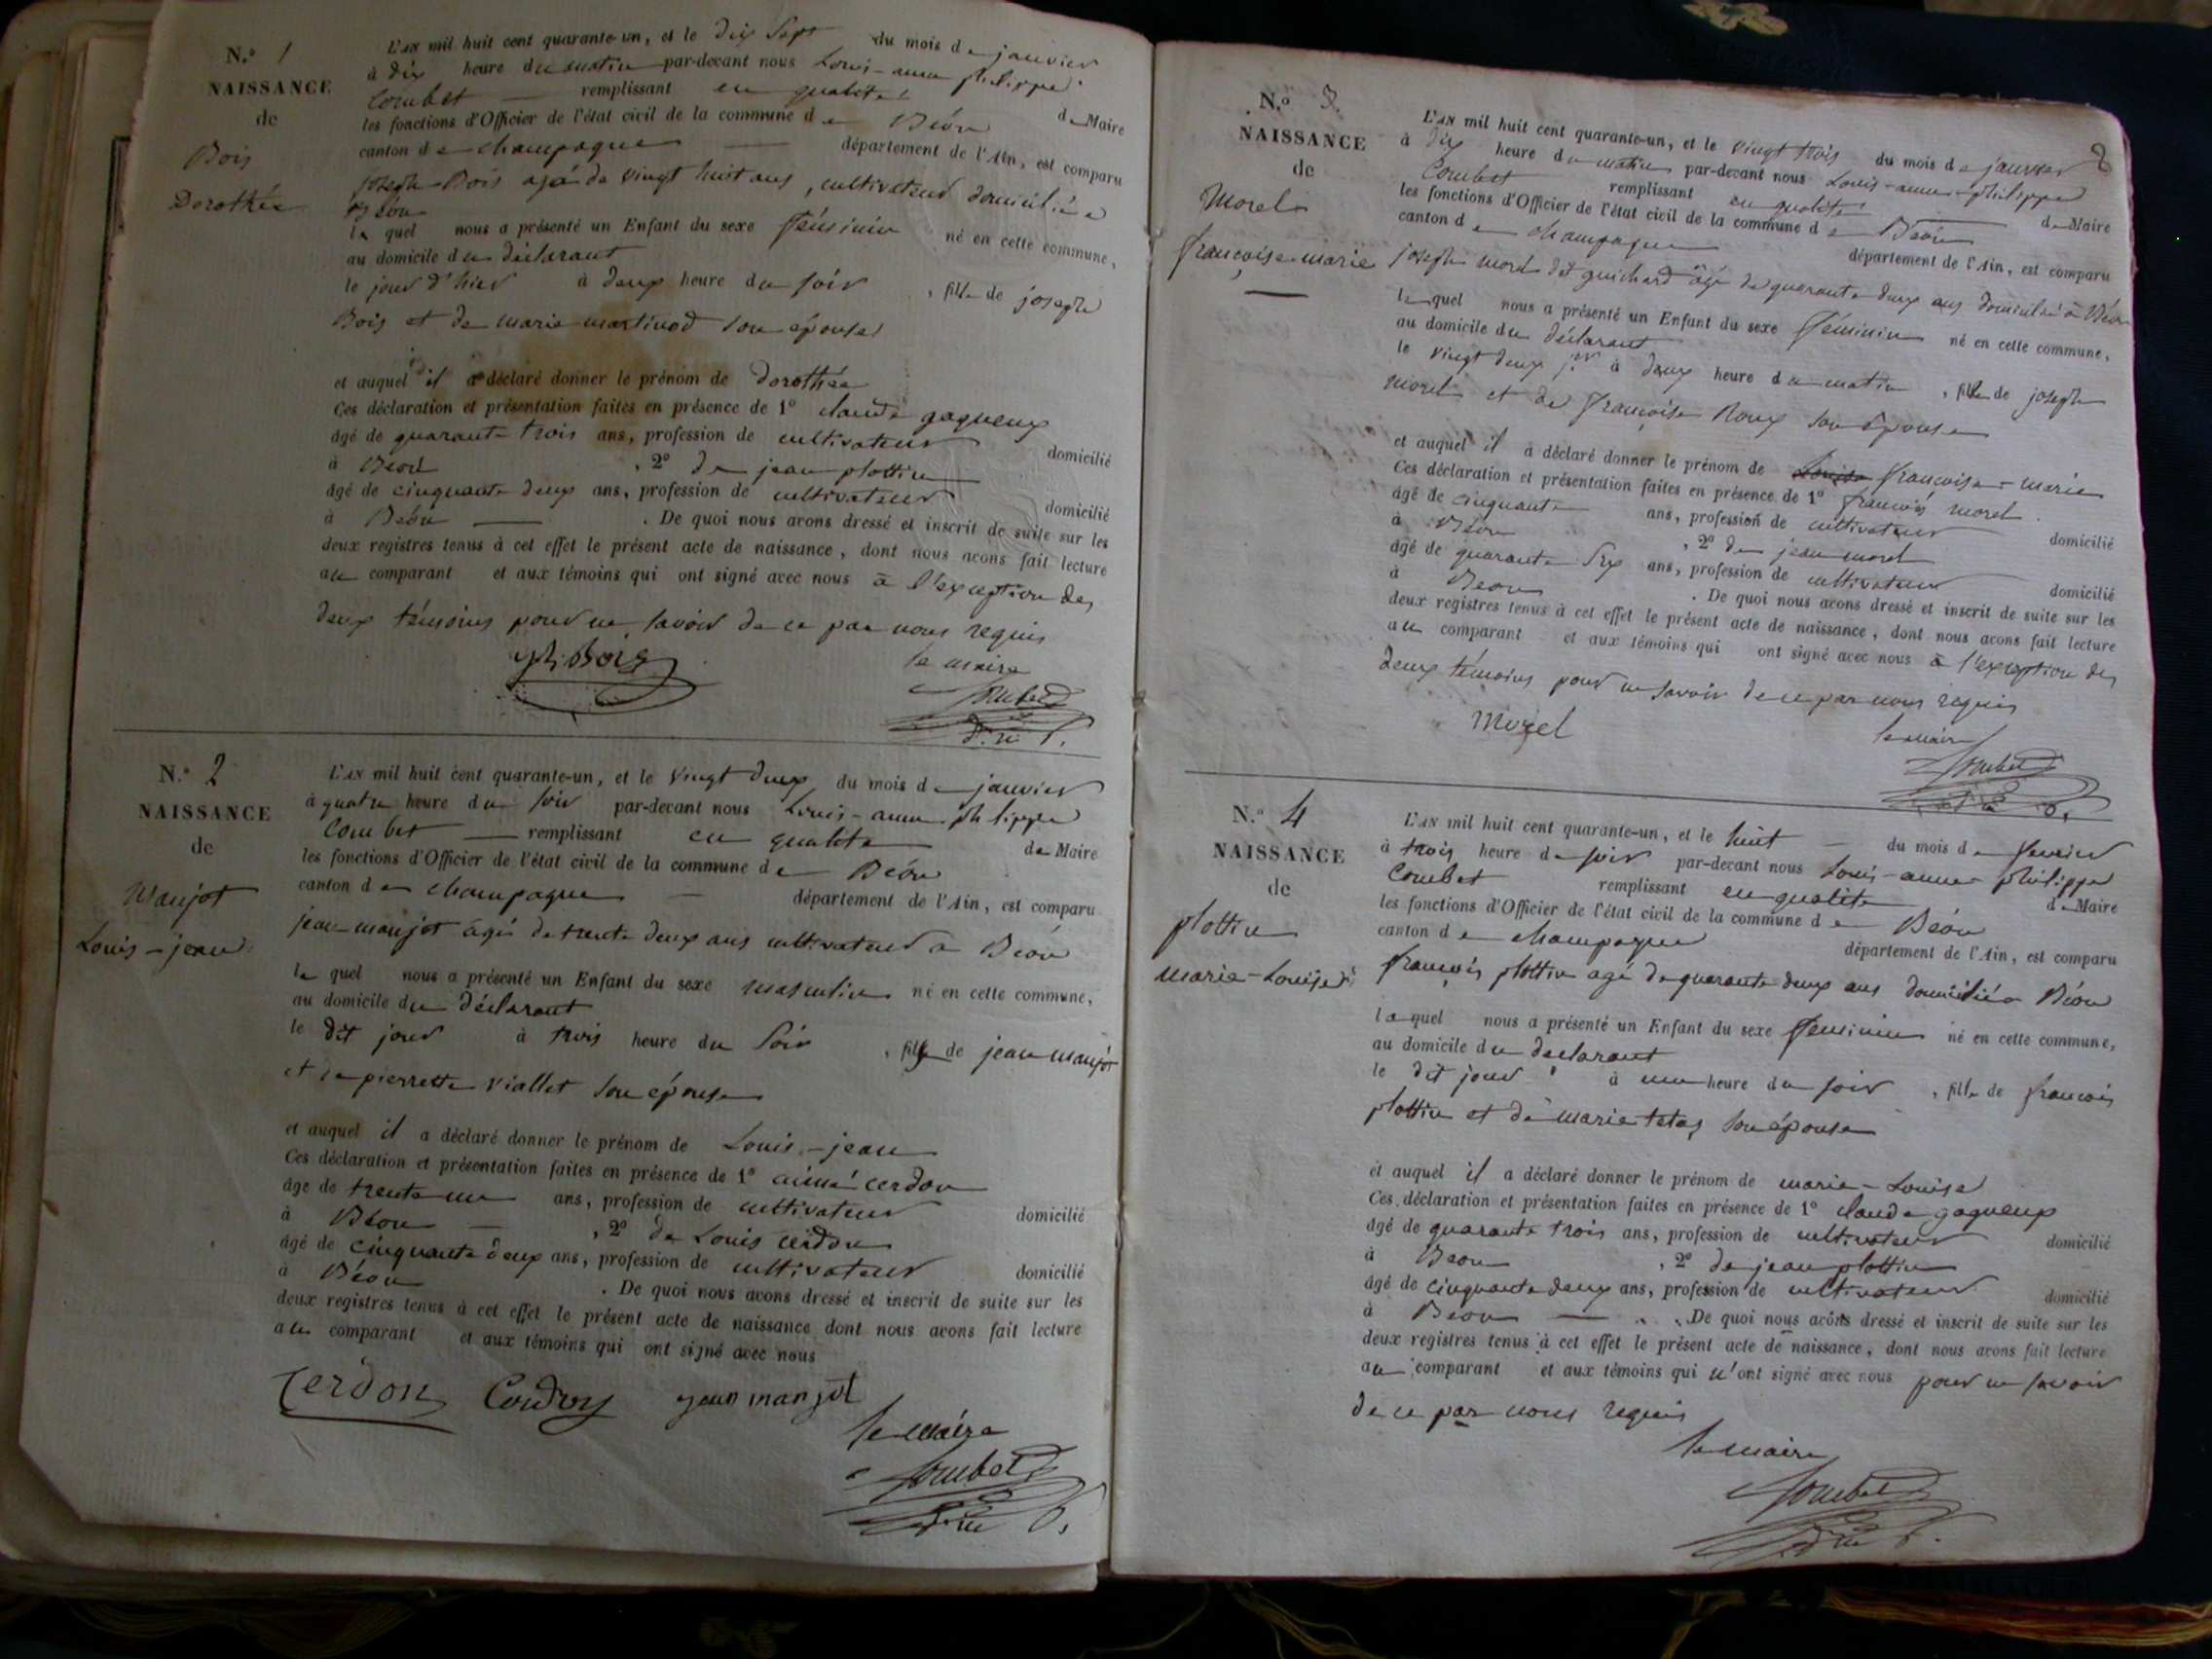 N.° 1
NAISSANCE
de
Bois
Dorothée
L'AN mil huit cent quarante-un, et le dix sept du mois de janvier
à dix heure du matin par-devant nous Louis-anne philippe
Combet remplissant en qualité de Maire
les fonctions d'Officier de l'état civil de la commune de Béon
canton de champagne département de l'Ain, est comparu
joseph Bois agé de vingt huit ans, cultivateur domicilié a
Béon
le quel nous a présenté un Enfant du sexe féminin né en cette commune,
au domicile du déclarant
le jour d'hier à deux heure du soir, fille de joseph
Bois et de marie martinod son épouse
et auquel il a déclaré donner le prénom de dorothée
Ces déclaration et présentation faites en présence de 1° claude gaqueux
âgé de quarante trois ans, profession de cultivateur domicilié
à Béon, 2° de jean plottin
âgé de cinquante deux ans, profession de cultivateur domicilié
à Béon. De quoi nous avons dressé et inscrit de suite sur les
deux registres tenus à cet effet le présent acte de naissance, dont nous avons fait lecture
au comparant et aux témoins qui ont signé avec nous à l'exception des
deux témoins pour ne savoir de ce par nous requis
le maire
Combet
N.° 2
NAISSANCE
de
Manjot
Louis-jean
L'AN mil huit cent quarante-un, et le vingt deux du mois de janvier
à quatre heure du soir par-devant nous Louis-anne philippe
Combet remplissant en qualité de Maire
les fonctions d'Officier de l'état civil de la commune de Béon
canton de champagne département de l'Ain, est comparu
jean manjot âgé de trente deux ans cultivateur a Béon
le quel nous a présenté un Enfant du sexe masculin né en cette commune,
au domicile du déclarant
le dit jour à trois heure du soir, fils de jean manjot
et de pierrette viallet son épouse
et auquel il a déclaré donner le prénom de Louis-jean
Ces déclaration et présentation faites en présence de 1° aimé cerdon
âgé de trente un ans, profession de cultivateur domicilié
à Béon, 2° de Louis cerdon
âgé de cinquante deux ans, profession de cultivateur domicilié
à Béon. De quoi nous avons dressé et inscrit de suite sur les
deux registres tenus à cet effet le présent acte de naissance dont nous avons fait lecture
au comparant et aux témoins qui ont signé avec nous
Cerdon jean manjot
le maire
Combet
N.° 3
NAISSANCE
de
Morel
francoise-marie
L'AN mil huit cent quarante-un, et le vingt trois du mois de janvier
à dix heure du matin par-devant nous Louis-anne-philippe
Combet remplissant en qualité de Maire
les fonctions d'Officier de l'état civil de la commune de Béon
canton de champagne département de l'Ain, est comparu
joseph morel dit guichard âgé de quarante deux ans domicilié a Béon
le quel nous a présenté un Enfant du sexe féminin né en cette commune,
au domicile du déclarant
le vingt deux à deux heure du matin, fille de joseph
morel et de françoise Roux son épouse
et auquel il a déclaré donner le prénom de francoise-marie
Ces déclaration et présentation faites en présence de 1° francois morel
âgé de cinquante ans, profession de cultivateur domicilié
à Béon, 2° de jean morel
âgé de quarante six ans, profession de cultivateur domicilié
à Béon. De quoi nous avons dressé et inscrit de suite sur les
deux registres tenus à cet effet le présent acte de naissance, dont nous avons fait lecture
au comparant et aux témoins qui ont signé avec nous à l'exception des
deux témoins pour ne savoir de ce par nous requis
Morel
le maire
Combet
N.° 4
NAISSANCE
de
plottin
marie-Louise
L'AN mil huit cent quarante-un, et le huit du mois de fevrier
à trois heure du soir par-devant nous Louis-anne philippe
Combet remplissant en qualité de Maire
les fonctions d'Officier de l'état civil de la commune de Béon
canton de champagne département de l'Ain, est comparu
françois plottin agé de quarante deux ans domicilié a Béon
le quel nous a présenté un Enfant du sexe feminin né en cette commune,
au domicile du declarant
le dit jour à une heure du soir, fille de francois
plottin et de marie tetas son épouse
et auquel il a déclaré donner le prénom de marie-Louise
Ces déclaration et présentation faites en présence de 1° claude gaqueux
âgé de quarante trois ans, profession de cultivateur domicilié
à Beon, 2° de jean plottin
âgé de cinquante deux ans, profession de cultivateur domicilié
à Beon. De quoi nous avons dressé et inscrit de suite sur les
deux registres tenus à cet effet le présent acte de naissance, dont nous avons fait lecture
au comparant et aux témoins qui n'ont signé avec nous pour ne savoir
de ce par nous requis
le maire
Combet